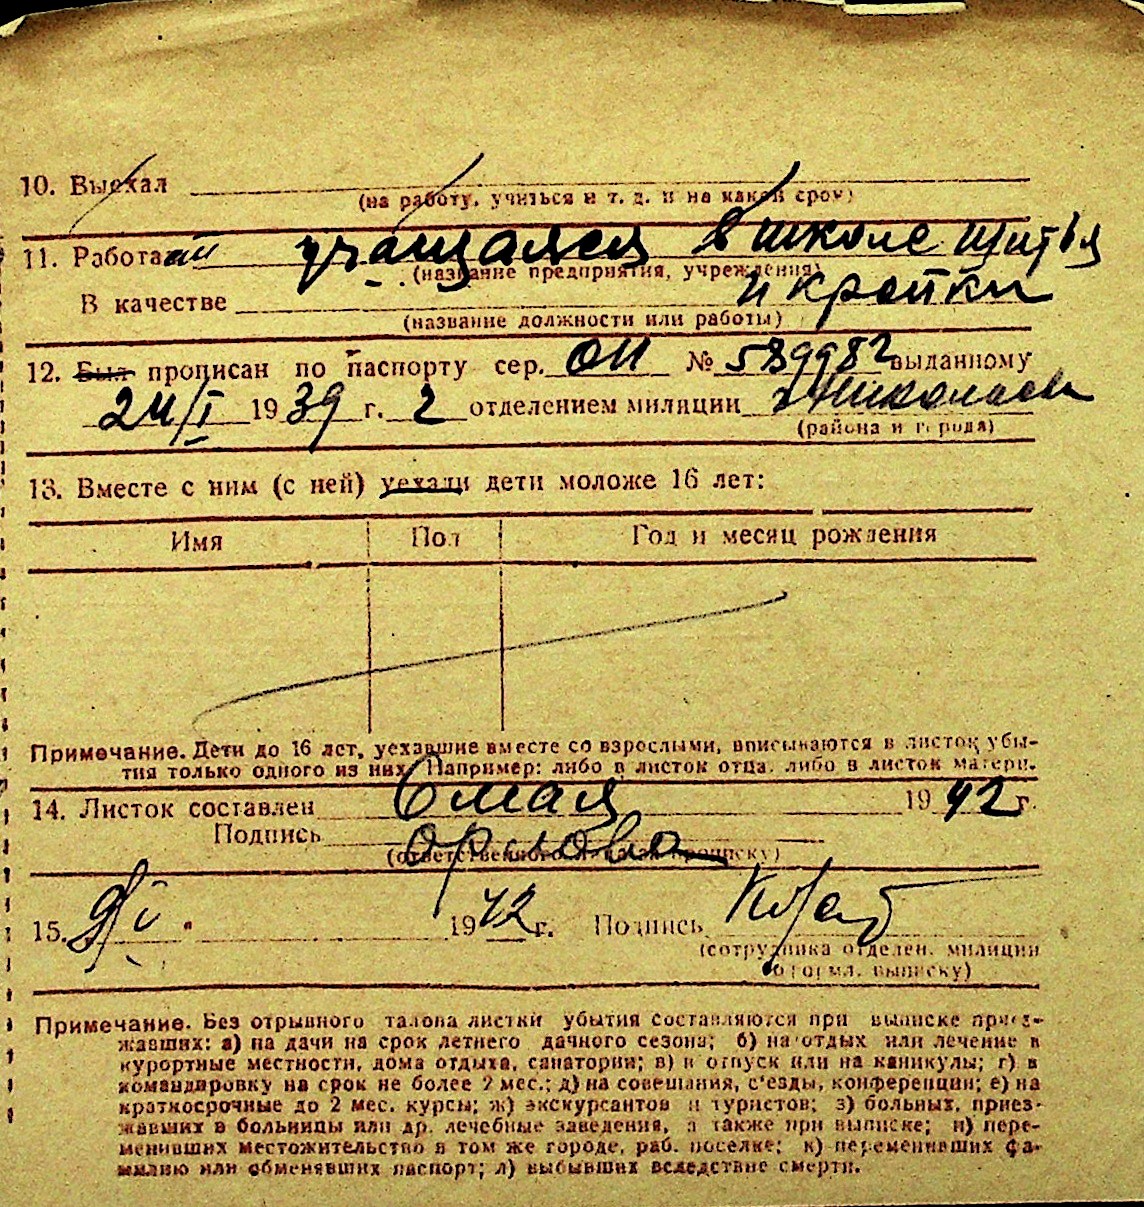 10. Выехал
(на работу, учиться и т. д. и на какой срок)
11. Работал учащаяся в школе шитья
(название предприятия, учреждения)
В качестве и кройки
(название должности или работы)
12. Был прописан по паспорту сер. ОИ № 589982 выданному
24/I 1939 г. 2 отделением милиции г Николаев
(района и города)
13. Вместе с ним (с ней) уехали дети моложе 16 лет:
Имя Пол Год и месяц рождения
Примечание. Дети до 16 лет, уехавшие вместе со взрослыми, вписываются в листок убы-
тия только одного из них. Например: либо в листок отца, либо в листок матери.
14. Листок составлен 6 мая 1942 г.
Подпись Орлова
(ответственного лица за прописку)
15. 9/V 1942 г. Подпись
(сотрудника отделен. милиции
оформл. выписку)
Примечание. Без отрывного талона листки убытия составляются при выписке приез-
жавших: а) на дачи на срок летнего дачного сезона; б) на отдых или лечение в
курортные местности, дома отдыха, санатории; в) в отпуск или на каникулы; г) в
командировку на срок не более 2 мес.; д) на совещания, с'езды, конференции; е) на
краткосрочные до 2 мес. курсы; ж) экскурсантов и туристов; з) больных, приез-
жавших в больницы или др. лечебные заведения, а также при выписке; и) пере-
менивших местожительство в том же городе, раб. поселке; к) переменивших фа-
милию или обменявших паспорт; л) выбывших вследствие смерти.